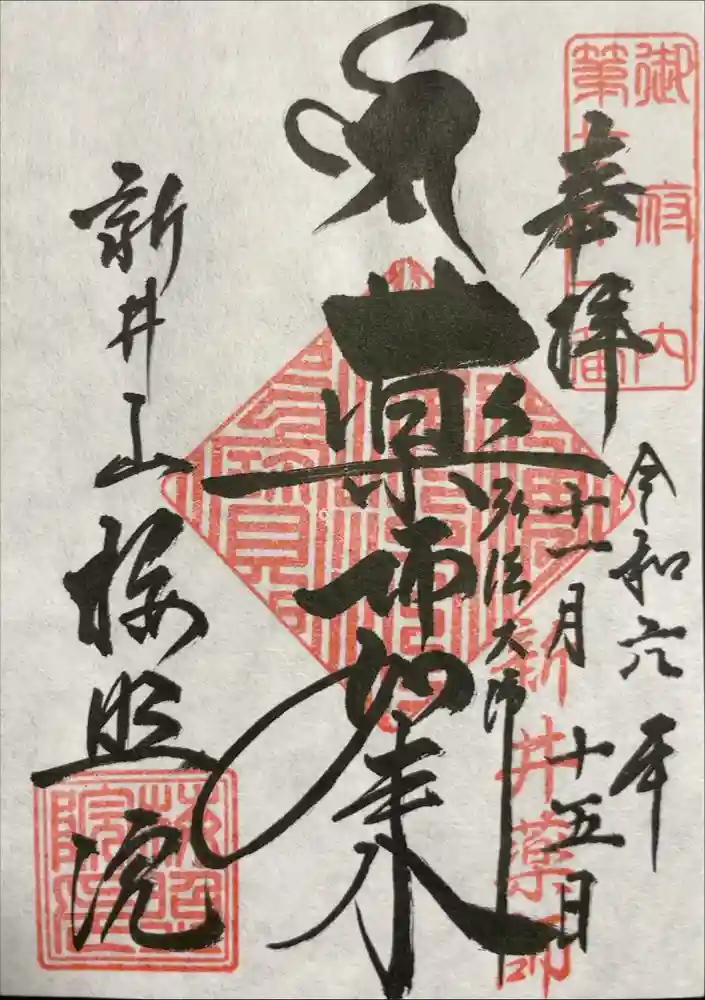 奉拝
令和六年
十一月十五日
弘法大師
薬師如来
新井山梅照院
御府内
新井薬師